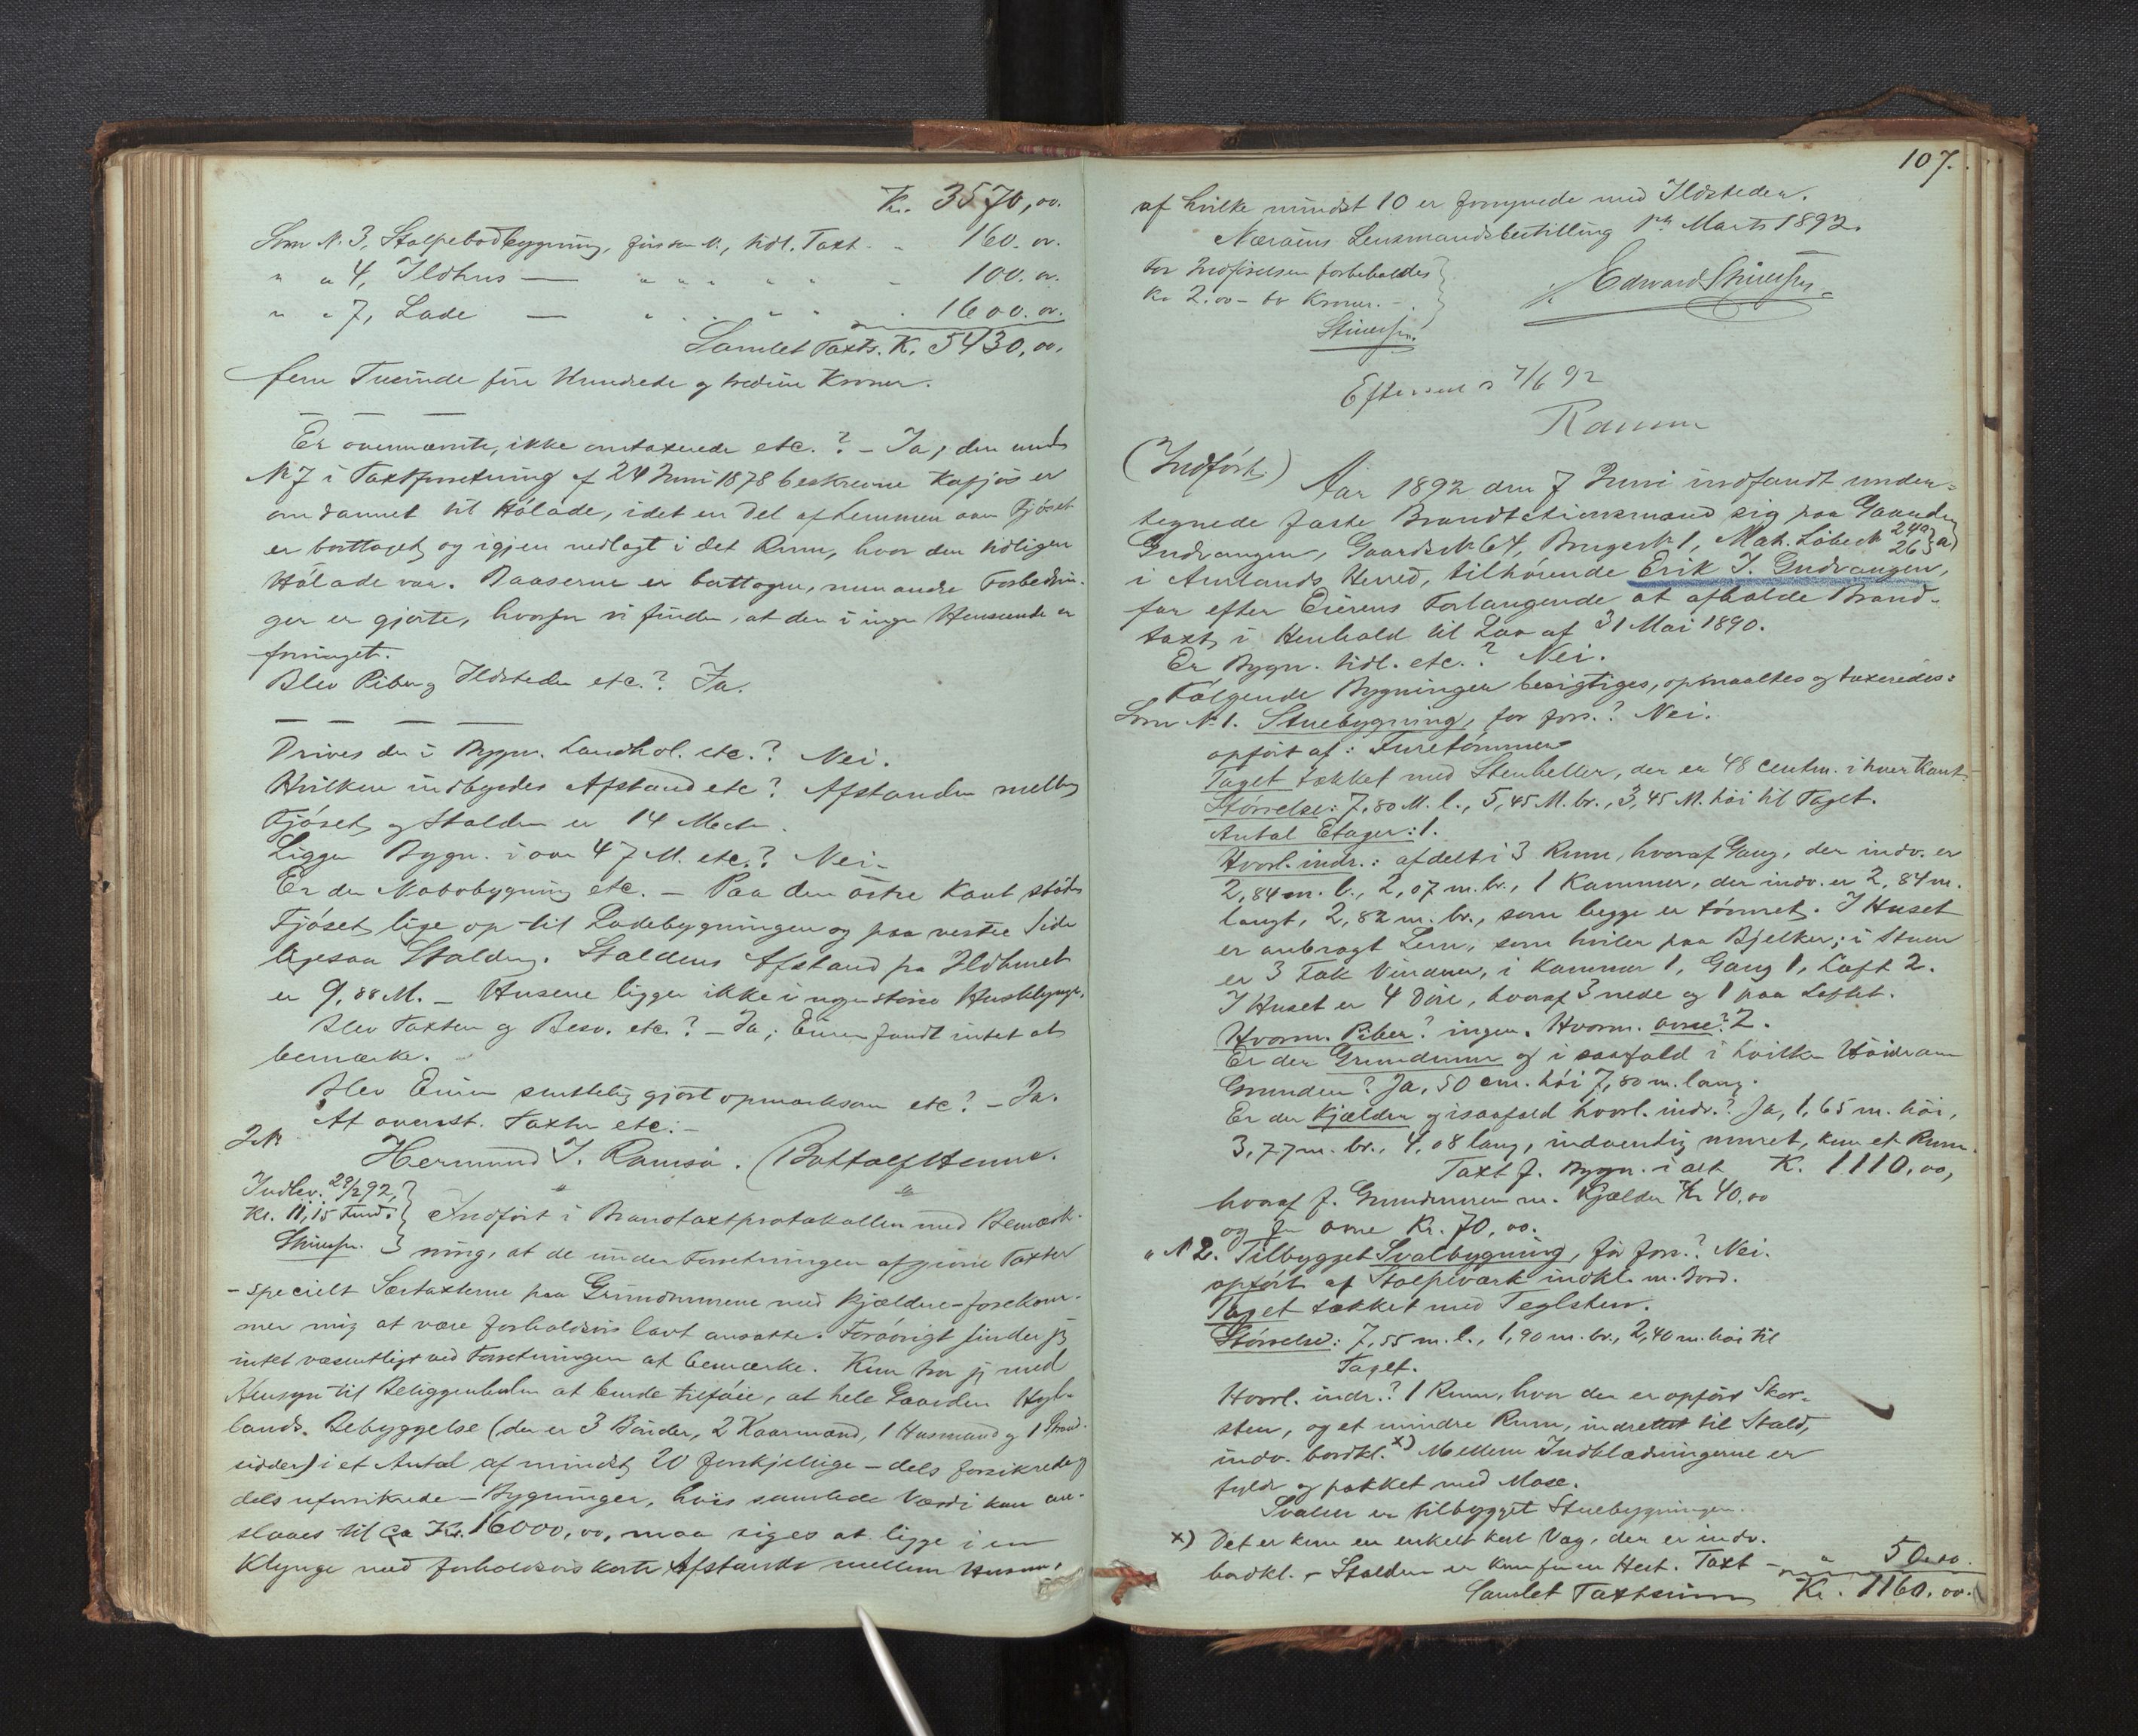 Kr. 3570,00.
Som N. 3, Stolpebodbygning, før for.?, tidl. Taxt - " 160. 00.
" " 4, Ildhus — " " " " " 100. 00.
" " 7, Lade — " " " " " 1600. 00.
Samlet Taxts. K. 5430,00.
fem Tusinde fire Hundrede og tredive Kroner.
Er ovennævnte, ikke omtaxerede etc.? - Ja, den under
N 7 i Taxtforretning af 24 Juni 1878 beskrevne er
omdannet til Hølade, idet en Del af Lemmen over Fjøset
er borttaget og igjen nedlagt i det Rum, hvor den tidligere
Hølade var. Baaserne er borttagne, men andre Forbedrin-
ger er gjorte, hvorfor vi finder, at den i ingen Henseende er
forringet.
Blev Piber og Ildsteder etc.? Ja.
Drives der i Bygn. Landhol. etc.? Nei.
Hvilken indbyrdes Afstand etc? Afstanden mellem
Fjøset og Stalden er 14 Meter.
Ligger Bygn. i over 47 M. etc.? Nei.
Er der Nabobygning etc. - Paa den østre Kant støder
Fjøset lige op til Ladebygningen og paa vestre Side
ligesaa Stalden. Staldens Afstand fra Ildhuset
er 9,88 M. - Husene ligger ikke i nogen større Husklynge.
Blev Taxten og Besv. etc.? - Ja; Eieren fandt intet at
bemærke.
Blev Eieren samtidig gjort opmærksom etc? - Ja.
At ovenst. Taxter etc: -
Hermund I. Ramsø. Bottolf
Indlev. 29/2 92,
Kr. 11,15 Indført i Brandtaxtprotokollen med Bemærk-
ning, at de under Forretningen afgivne Taxter
- specielt Særtaxterne paa Grundmurene med Kjældere - forekom-
mer mig at være forholdsvis lavt ansatte. Forøvrigt finder jeg
intet væsentligt ved Forretningen at bemærke. Kun har jeg med
Hensyn til Beliggenheden at burde tilføie, at hele Gaarden Hyl-
lands. Bebyggelse (der er 3 Bønder, 2 Kaarmænd, 1 Husmand og 1 Strand-
sidder) i et Antal af mindst 20 forskjellige - dels forsikrede og
dels uforsikrede - Bygninger, hvis samlede Værdi kan an-
slaaes til ca Kr. 16000,00, maa siges at ligge i en
Klynge med forholdsvis korte Afstande mellem Husene,
107.
af hvilke mindst 10 er forsynede med Ildsteder.
Nærøens Lensmandsbestilling 1ste Marts 1892.
For Indførelsen forbeholdes
Kr 2.00 - to Kroner. -
Edward
Efterseet d 7/6 92
Ramm
(Indført.) Aar 1892 den 7 Juni indfandt under-
tegnede faste Brandtaxtionsmænd sig paa Gaarden
Gudvangen, Gaardsn 64, Brugsn 1, Mat. Løben 249 26 a
i Aurlands Herred, tilhørende Erik I. Gudvangen,
for efter Eierens Forlangende at afholde Brand-
taxt i Henhold til Lov af 31 Mai 1890.
Er Bygn. tidl. etc.? Nei.
Følgende Bygninger besigtiges, opmaaltes og taxeredes:
Som N. 1. Stuebygning, før fors.? Nei.
opført af: Furetømmer
Taget tækket med Stenheller, der er 48 centm. i hver Kant.
Størrelse: 7,80 M. l., 5,45 M. br., 3,45 M. høi til Taget.
Antal Etager: 1.
Hvorl. indr.: afdelt i 3 Rum, hvoraf Gang, der indv. er
2,84 m. l., 2,07 m. br., 1 Kammer, der indv. er 2,84 m.
langt, 2,82 m. br., som begge er tømret. I Huset
er anbragt Lem, som hviler paa Bjelker; i Stuen
er 3 Fak Vinduer, i Kammer 1, Gang 1, Loft 2.
I Huset er 4 Døre, hvoraf 3 nede og 1 paa Loftet.
Hvorm. Piber? ingen. Hvorm. ovne? 2.
Er der Grundmur og i saafald i hvilken Høide over
Grunden? Ja, 50 cm. høi 7,80 m. lang.
Er der Kjælder og isaafald hvorl. indr.? Ja, 1,65 m. høi,
3,77 m. br., 4,08 lang, indvendig muret, kun et Rum.
Taxt f. Bygn. i alt K. 1110,00,
hvoraf f. Grundmuren m. Kjælder Kr 40,00
og for ovne Kr. 70,00.
" N 2. Tilbygget Svalbygning, før fors.? Nei.
opført af Stolpeværk indkl. m. Bord.
Taget tækket med Teglsten.
Størrelse: 7,55 m. l., 1,90 m. br., 2,40 m. høi til
Taget.
Hvorl. indr.? 1 Rum, hvor der er opført Skor-
sten, og et mindre Rum, indrettet til Stald,
indv. bordkl. x) Mellem Indklædningerne er
fyldt og pakket med Mose.
Svalen er tilbygget Stuebygningen.
x) Det er kun en enkelt kort Væg, der er indv.
bordkl. - Stalden er kun for en Hest. Taxt - " 50.00.
Samlet Taxtsum Kr. 1160.00.